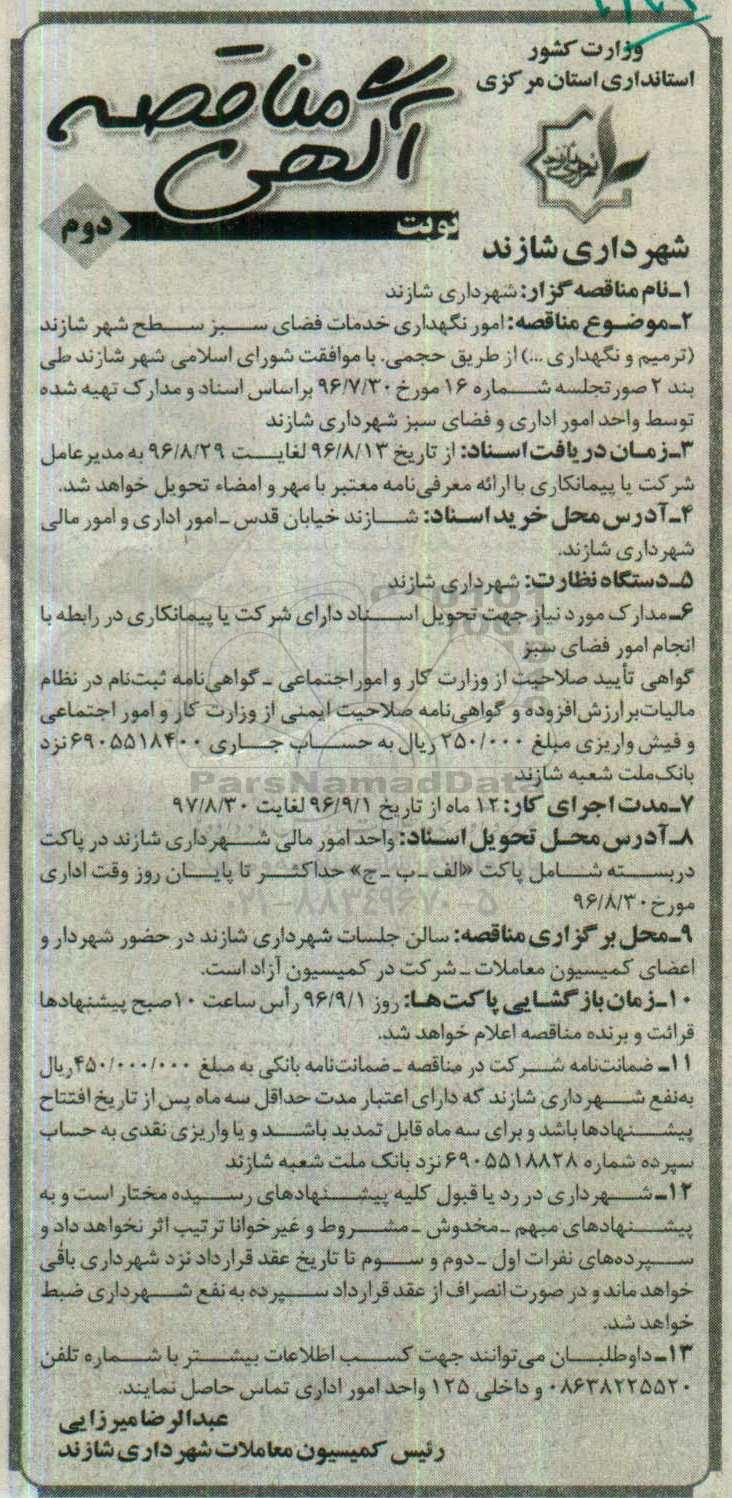 وزارت کشور
استانداری استان مرکزی
آگهی مناقصه
نوبت دوم
شهرداری شازند
۱ـ نام مناقصه گزار: شهرداری شازند
۲ـ موضوع مناقصه: امور نگهداری خدمات فضای سبز سطح شهر شازند
(ترمیم و نگهداری ...) از طریق حجمی. با موافقت شورای اسلامی شهر شازند طی
بند ۲ صورتجلسه شماره ۱۶ مورخ ۹۶/۷/۳۰ براساس اسناد و مدارک تهیه شده
توسط واحد امور اداری و فضای سبز شهرداری شازند
۳ـ زمان دریافت اسناد: از تاریخ ۹۶/۸/۱۳ لغایت ۹۶/۸/۲۹ به مدیرعامل
شرکت یا پیمانکاری با ارائه معرفی‌نامه معتبر با مهر و امضاء تحویل خواهد شد.
۴ـ آدرس محل خرید اسناد: شازند خیابان قدس ـ امور اداری و امور مالی
شهرداری شازند.
۵ـ دستگاه نظارت: شهرداری شازند
۶ـ مدارک مورد نیاز جهت تحویل اسناد دارای شرکت یا پیمانکاری در رابطه با
انجام امور فضای سبز
گواهی تأیید صلاحیت از وزارت کار و امور اجتماعی ـ گواهی‌نامه ثبت‌نام در نظام
مالیات بر ارزش افزوده و گواهی‌نامه صلاحیت ایمنی از وزارت کار و امور اجتماعی
و فیش واریزی مبلغ ۲۵۰/۰۰۰ ریال به حساب جاری ۶۹۰۵۵۱۸۴۰۰ نزد
بانک ملت شعبه شازند
ParsNamadData
۷ـ مدت اجرای کار: ۱۲ ماه از تاریخ ۹۶/۹/۱ لغایت ۹۷/۸/۳۰
۸ـ آدرس محل تحویل اسناد: واحد امور مالی شهرداری شازند در پاکت
دربسته شامل پاکت «الف ـ ب ـ ج» حداکثر تا پایان روز وقت اداری
مورخ ۹۶/۸/۳۰
۰۲۱-۸۸۳۴۹۶۷۰-۵
۹ـ محل برگزاری مناقصه: سالن جلسات شهرداری شازند در حضور شهردار و
اعضای کمیسیون معاملات ـ شرکت در کمیسیون آزاد است.
۱۰ـ زمان بازگشایی پاکت‌ها: روز ۹۶/۹/۱ رأس ساعت ۱۰ صبح پیشنهادها
قرائت و برنده مناقصه اعلام خواهد شد.
۱۱ـ ضمانت‌نامه شرکت در مناقصه ـ ضمانت‌نامه بانکی به مبلغ ۴۵۰/۰۰۰/۰۰۰ ریال
به‌نفع شهرداری شازند که دارای اعتبار مدت حداقل سه ماه پس از تاریخ افتتاح
پیشنهادها باشد و برای سه ماه قابل تمدید باشد و یا واریزی نقدی به حساب
سپرده شماره ۶۹۰۵۵۱۸۸۲۸ نزد بانک ملت شعبه شازند
۱۲ـ شهرداری در رد یا قبول کلیه پیشنهادهای رسیده مختار است و به
پیشنهادهای مبهم ـ مخدوش ـ مشروط و غیرخوانا ترتیب اثر نخواهد داد و
سپرده‌های نفرات اول ـ دوم و سوم تا تاریخ عقد قرارداد نزد شهرداری باقی
خواهد ماند و در صورت انصراف از عقد قرارداد سپرده به نفع شهرداری ضبط
خواهد شد.
۱۳ـ داوطلبان می‌توانند جهت کسب اطلاعات بیشتر با شماره تلفن
۰۸۶۳۸۲۲۵۵۲۰ و داخلی ۱۲۵ واحد امور اداری تماس حاصل نمایند.
عبدالرضا میرزایی
رئیس کمیسیون معاملات شهرداری شازند